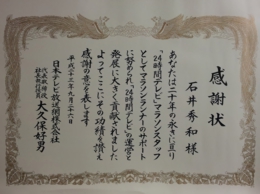 感謝状
石井秀和様
あなたは二十年の永きに亘り
「24時間テレビ」マラソンスタッフ
としてマラソンランナーのサポート
に努められ「24時間テレビ」の運営と
発展に大きく貢献されました
よってここにその功績を讃え
感謝の意を表します
平成二十三年九月二十六日
日本テレビ放送網株式会社
代表取締役
社長執行役員
大久保好男